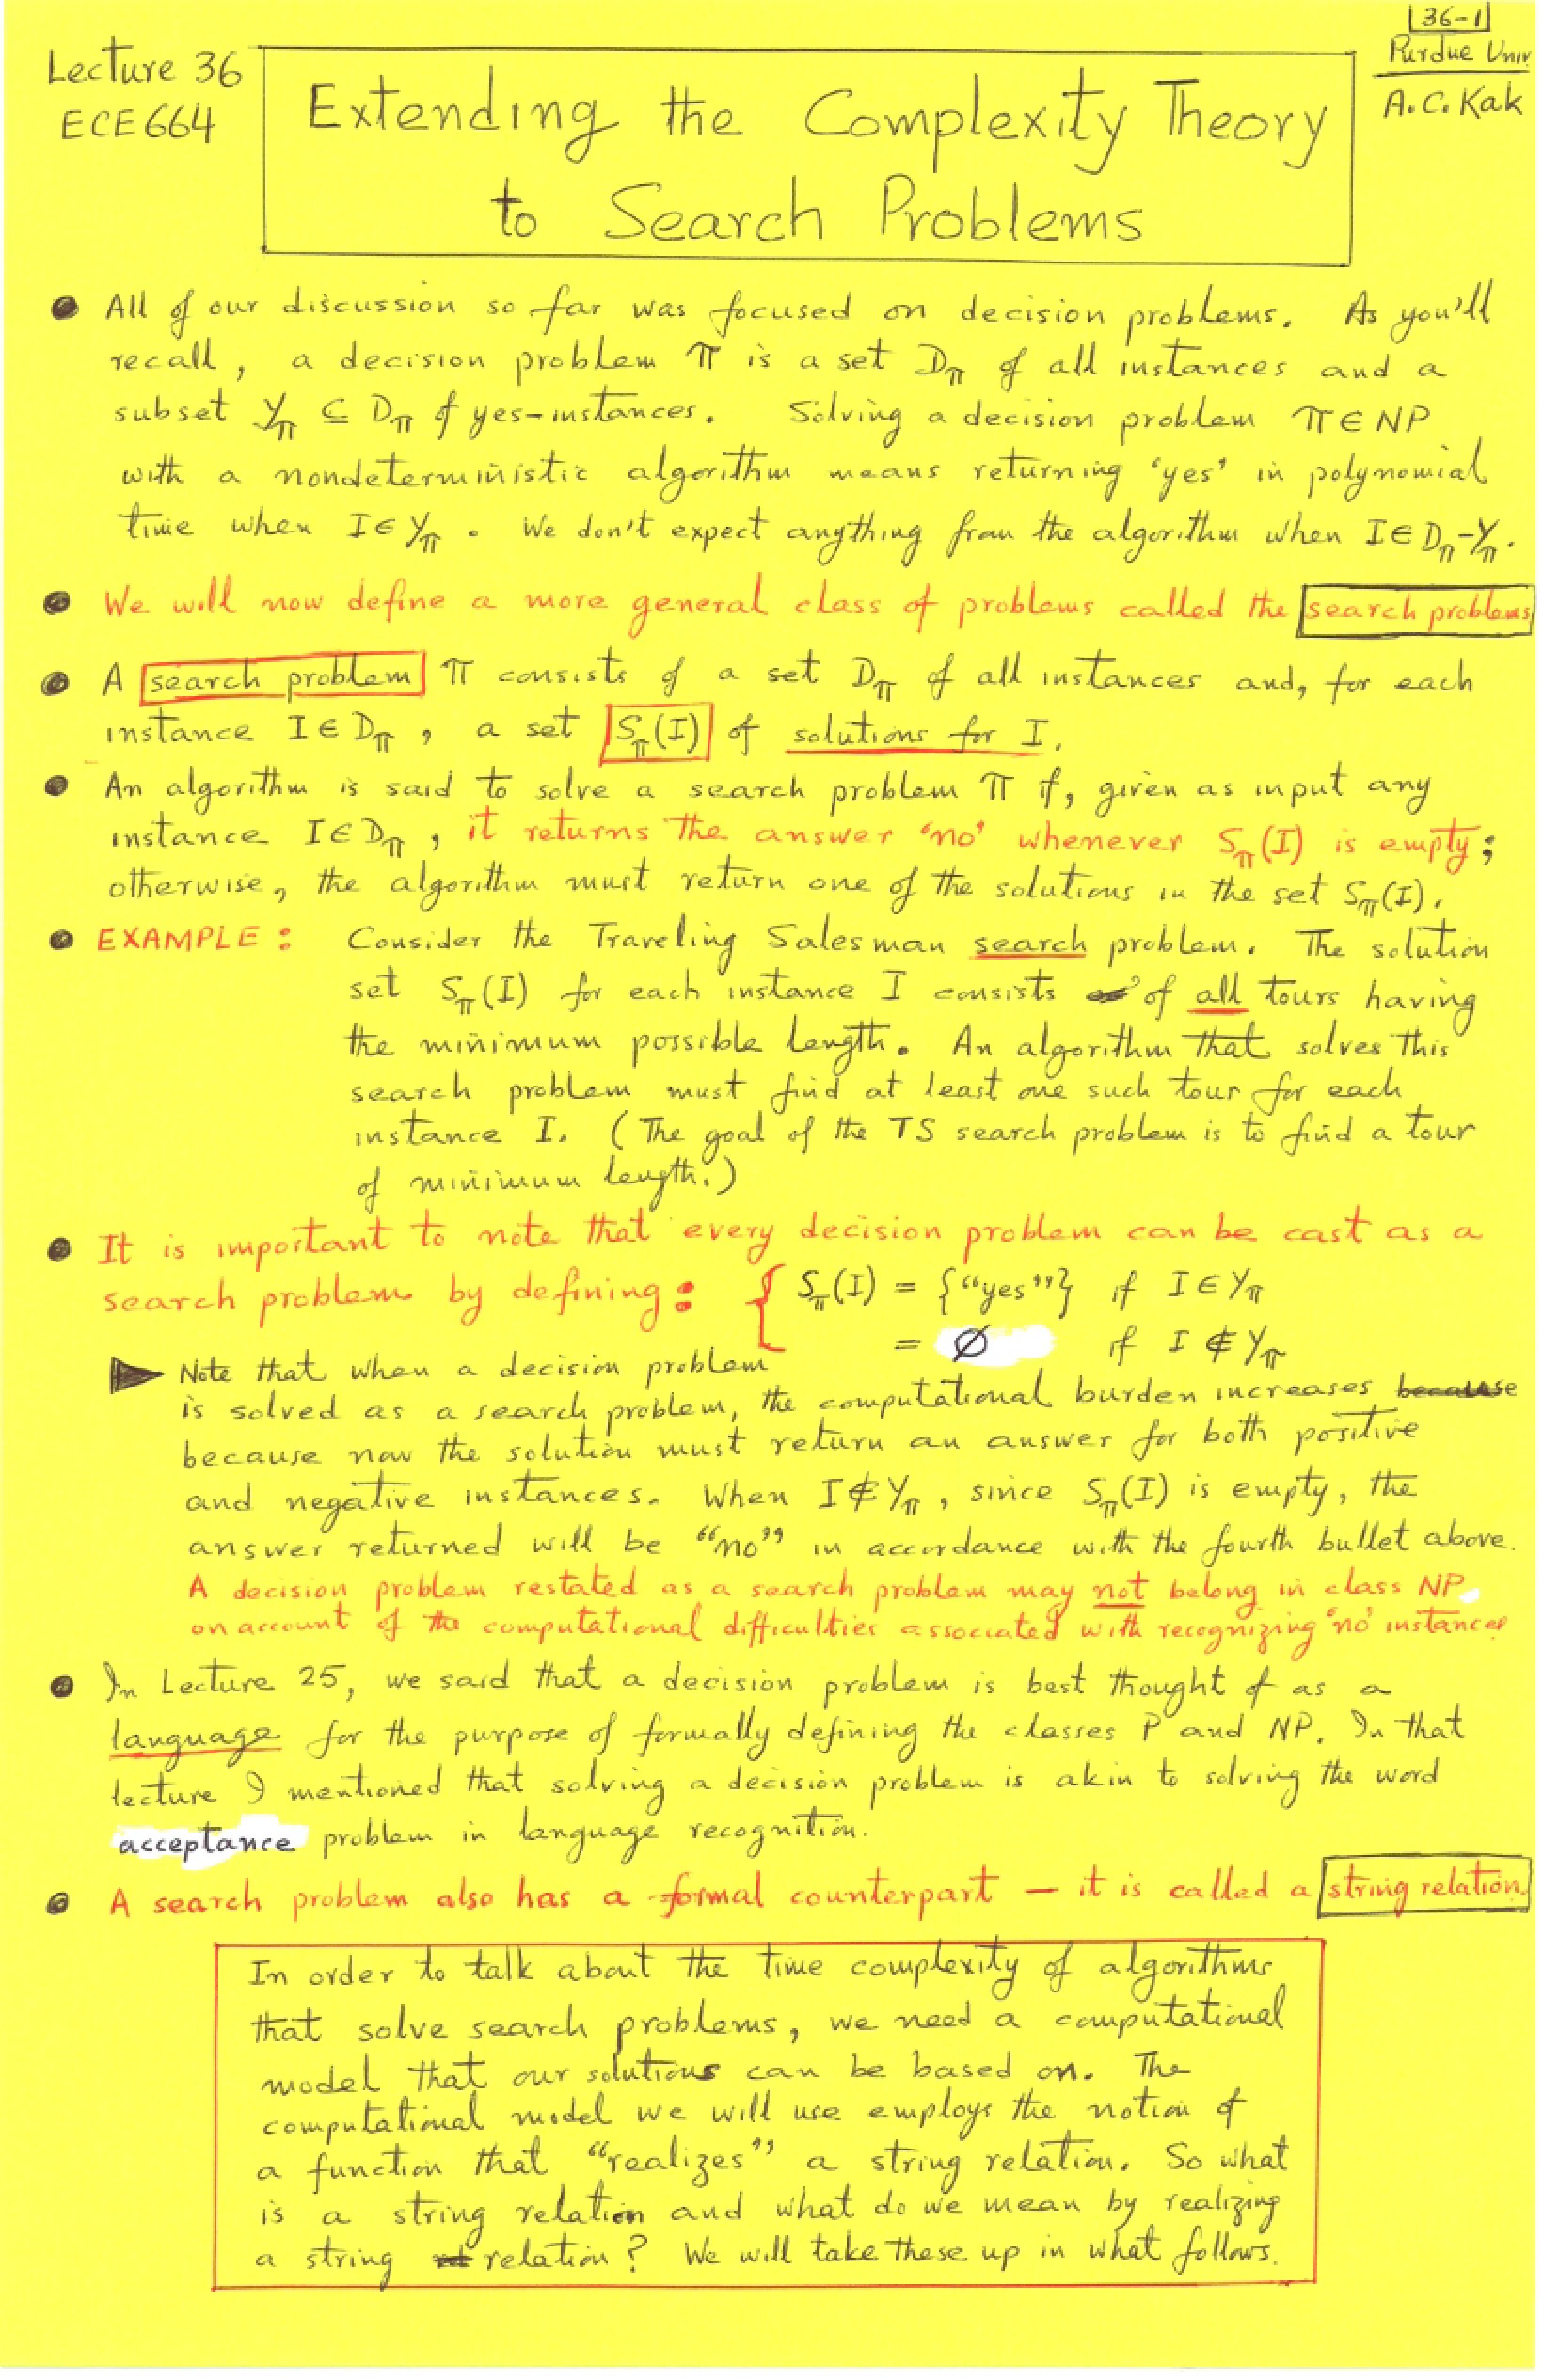 36-1
Purdue Univ.
A.C. Kak
Lecture 36
ECE 664
Extending the Complexity Theory
to Search Problems
● All of our discussion so far was focused on decision problems. As you'll
recall, a decision problem π is a set D_π of all instances and a
subset Y_π ⊆ D_π of yes-instances. Solving a decision problem π ∈ NP
with a nondeterministic algorithm means returning 'yes' in polynomial
time when I ∈ Y_π. We don't expect anything from the algorithm when I ∈ D_π-Y_π.
● We will now define a more general class of problems called the search problems
● A search problem π consists of a set D_π of all instances and, for each
instance I ∈ D_π, a set S_π(I) of solutions for I.
● An algorithm is said to solve a search problem π if, given as input any
instance I ∈ D_π, it returns the answer 'no' whenever S_π(I) is empty;
otherwise, the algorithm must return one of the solutions in the set S_π(I).
● EXAMPLE: Consider the Traveling Salesman search problem. The solution
set S_π(I) for each instance I consists of all tours having
the minimum possible length. An algorithm that solves this
search problem must find at least one such tour for each
instance I. (The goal of the TS search problem is to find a tour
of minimum length.)
● It is important to note that every decision problem can be cast as a
search problem by defining: { S_π(I) = {"yes"} if I ∈ Y_π
= ∅ if I ∉ Y_π
▶ Note that when a decision problem
is solved as a search problem, the computational burden increases because
because now the solution must return an answer for both positive
and negative instances. When I ∉ Y_π, since S_π(I) is empty, the
answer returned will be "no" in accordance with the fourth bullet above.
A decision problem restated as a search problem may not belong in class NP
on account of the computational difficulties associated with recognizing 'no' instances
● In Lecture 25, we said that a decision problem is best thought of as a
language for the purpose of formally defining the classes P and NP. In that
lecture I mentioned that solving a decision problem is akin to solving the word
acceptance problem in language recognition.
● A search problem also has a formal counterpart — it is called a string relation.
In order to talk about the time complexity of algorithms
that solve search problems, we need a computational
model that our solutions can be based on. The
computational model we will use employs the notion of
a function that "realizes" a string relation. So what
is a string relation and what do we mean by realizing
a string relation? We will take these up in what follows.